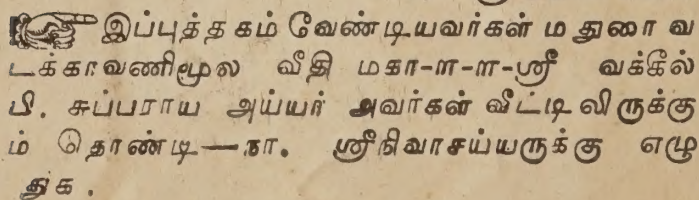 ☞ இப்புத்தகம் வேண்டியவர்கள் மதுரை வ
டக்காவணிமூல வீதி மகா-ள-ள-ஸ்ரீ வக்கீல்
பி. சுப்பராய அய்யர் அவர்கள் வீட்டிலிருக்கு
ம் தொண்டி—நா. ஸ்ரீநிவாசய்யருக்கு எழு
துக.